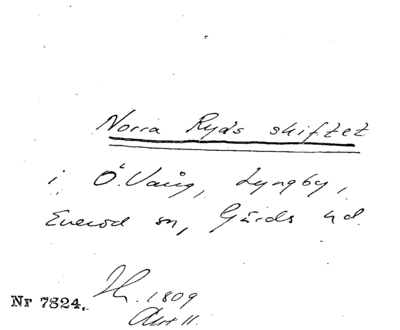 Norra Ryds skiftet
i Ö. Vång, Lyngby,
Everöd sn, Gärds hd.
1809
Nr 7824.
Akt 11.